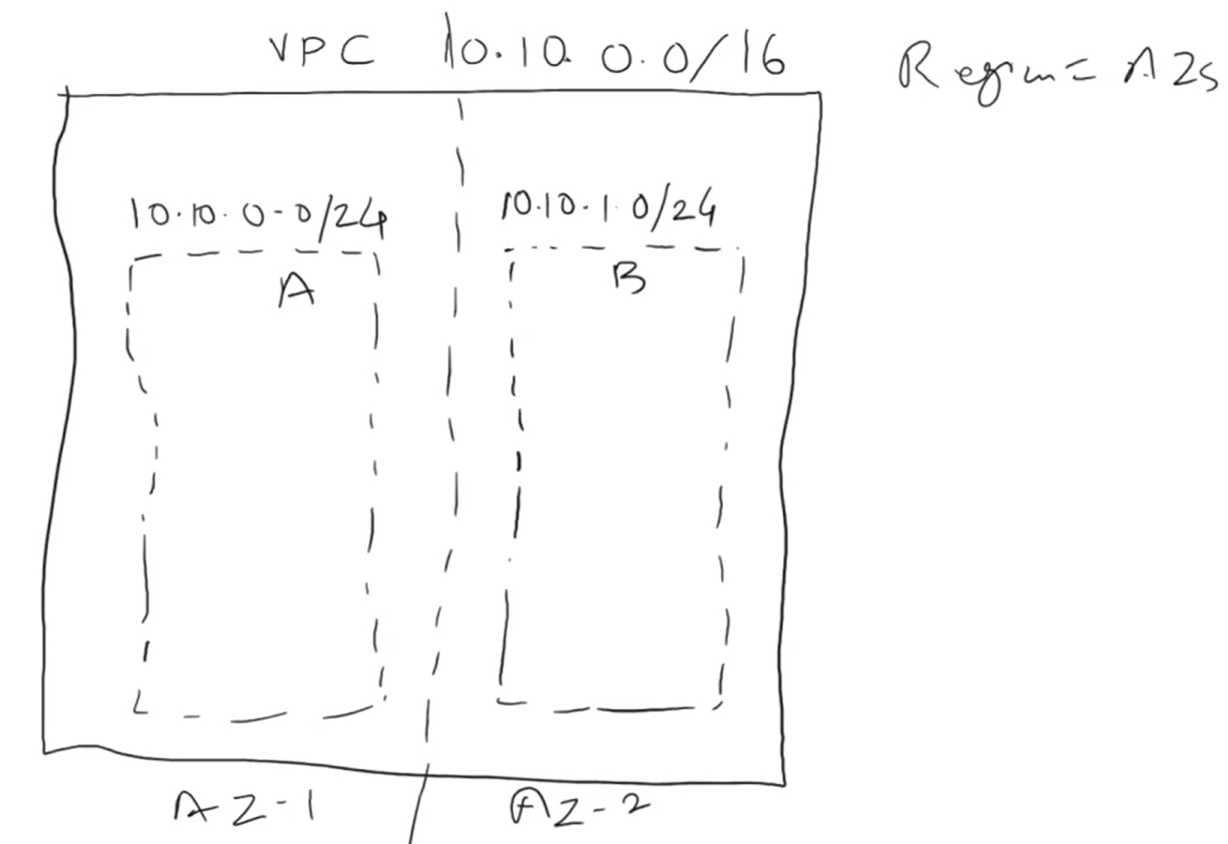 VPC 10.10.0.0/16
Region = AZs
10.10.0.0/24
10.10.1.0/24
A
B
AZ-1
AZ-2